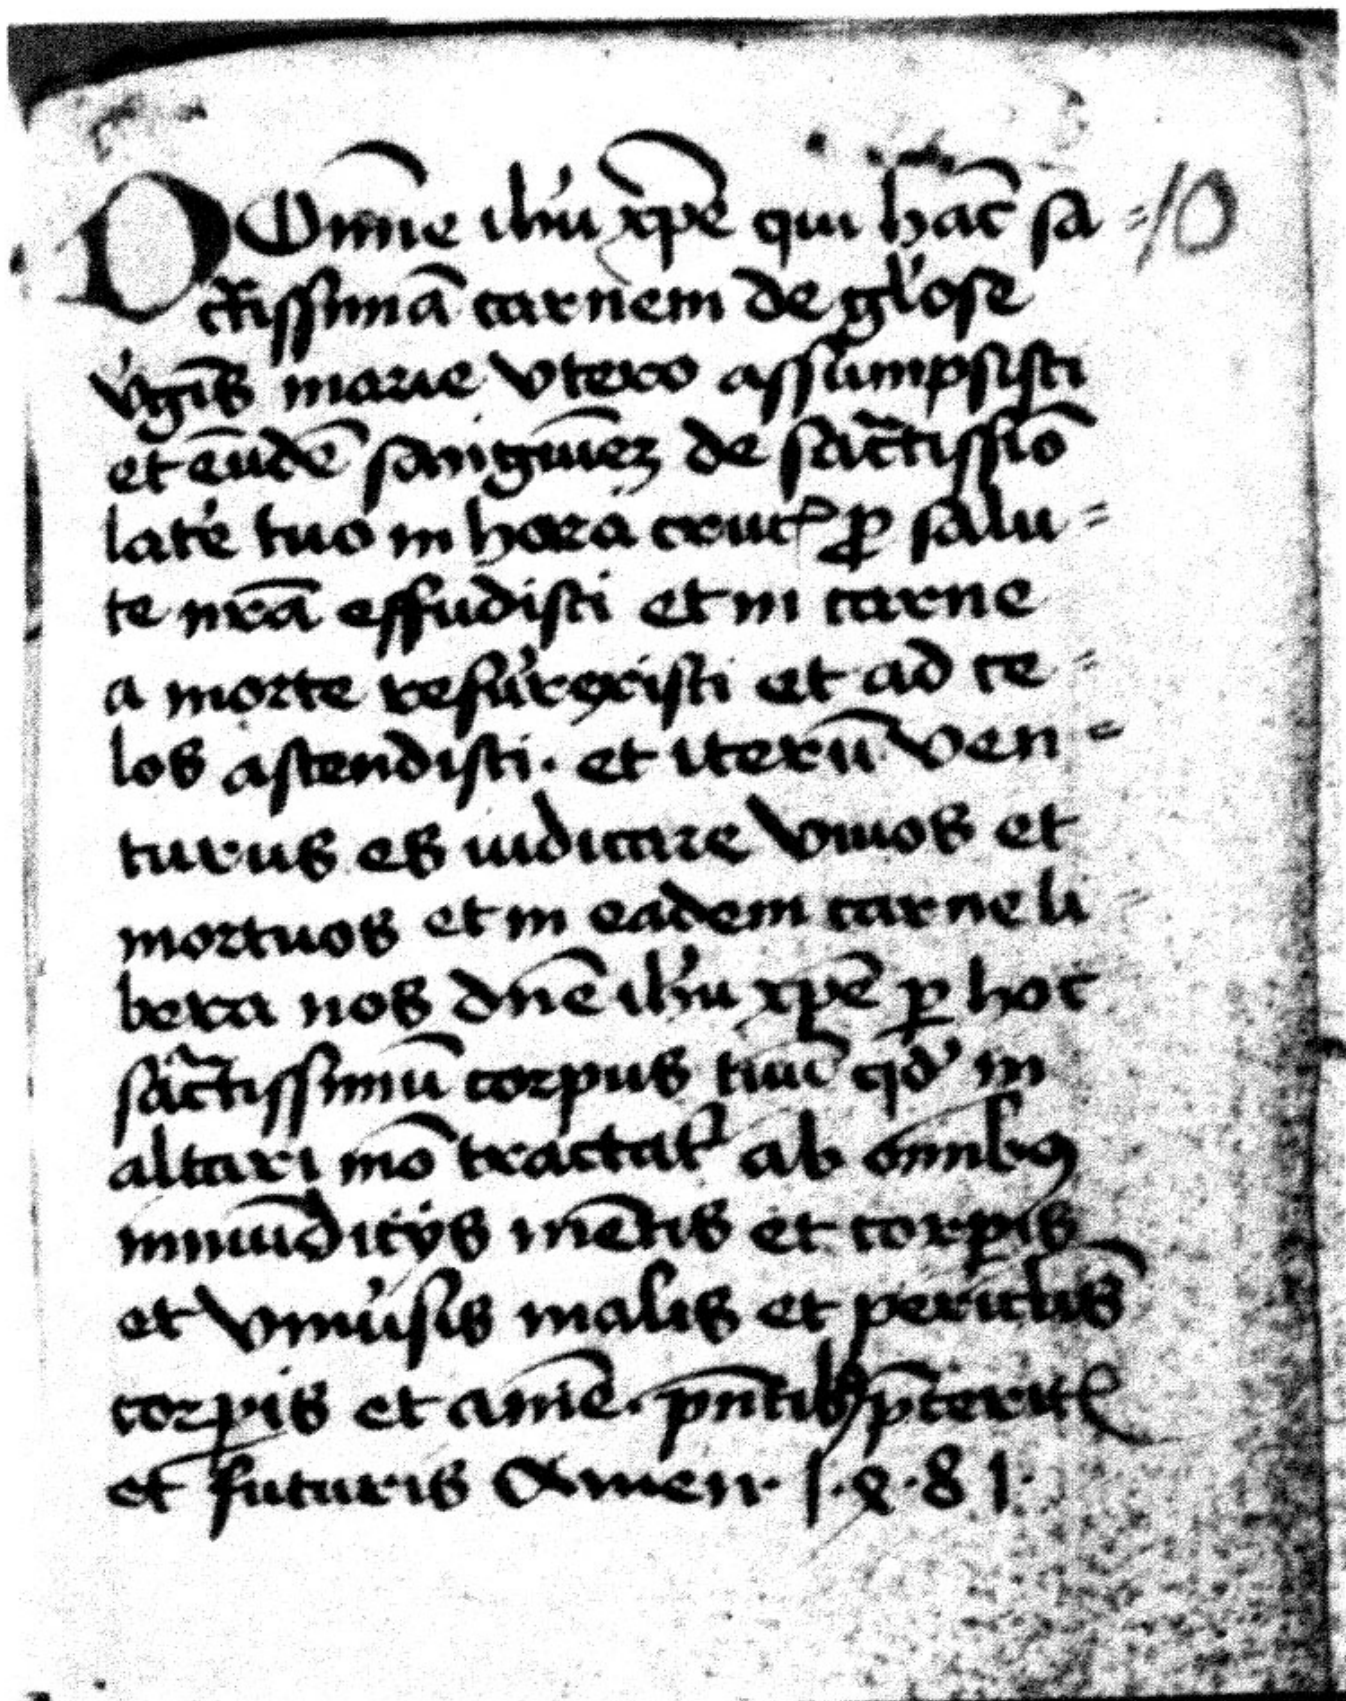 DOmīne ihū xp̄e qui hāc sa =
cr̄issimā carnem de gl'ose
v'gīs marie vtero assumpsisti
et eūdē sangwinez de sāctissīo
late' tuo in hora cruc͛ ꝓ salu =
te nr̄a effudisti et in carne
a morte resurrexisti et ad ce =
los ascendisti. et iterū ven =
turus es iudicare viuos et
mortuos et in eadem carne li -
bera nos dn̄e ihū xp̄e ꝑ hoc
sāctissimū corpus tuū qd' in
altari mō tractat͛ ab om̄ibꝯ
inmūdicijs mētis et corꝑis
et vniu'sis malis et periculis
corꝑis et anīe. pn̄tibꝯ p̄terit͛
et futuris Amen. 1.ꝝ.8 1.
10